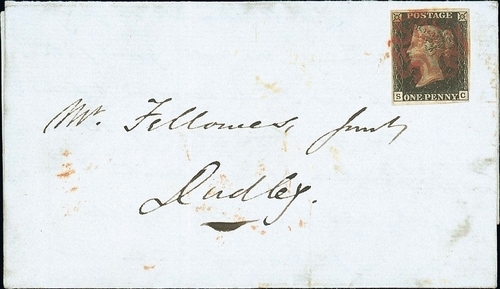 POSTAGE
S ONE PENNY C
Mr. Fellowes, Junr
Dudley.